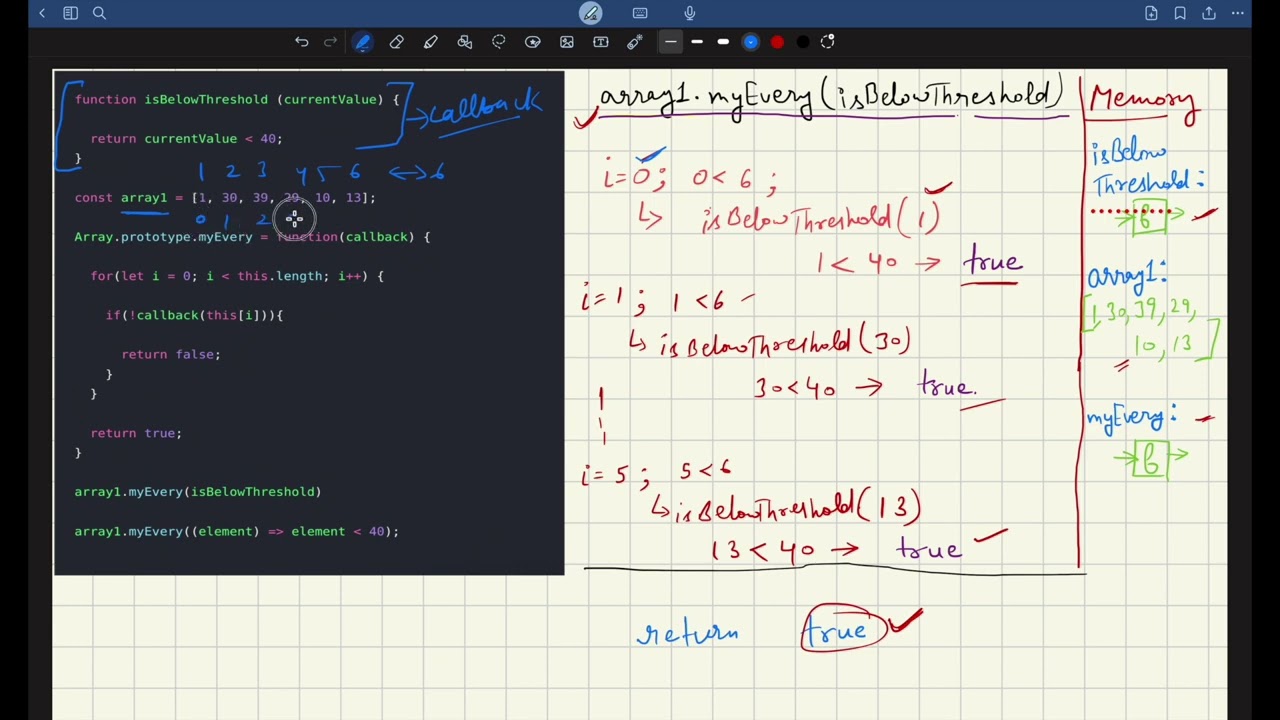 function isBelowThreshold (currentValue) {
→callback
return currentValue < 40;
}
1 2 3 4 5 6 ↔ 6
const array1 = [1, 30, 39, 29, 10, 13];
0 1 2
Array.prototype.myEvery = function(callback) {
for(let i = 0; i < this.length; i++) {
if(!callback(this[i])){
return false;
}
}
return true;
}
array1.myEvery(isBelowThreshold)
array1.myEvery((element) => element < 40);
array1.myEvery(isBelowThreshold)
i=0; 0<6;
↳ isBelowThreshold(1)
1<40 → true
i=1; 1<6
↳ isBelowThreshold(30)
30<40 → true.
i=5; 5<6
↳ isBelowThreshold(13)
13<40 → true
return true
Memory
isBelow
Threshold:
→ f →
array1:
[1,30,39,29,
10,13]
myEvery:
→ f →